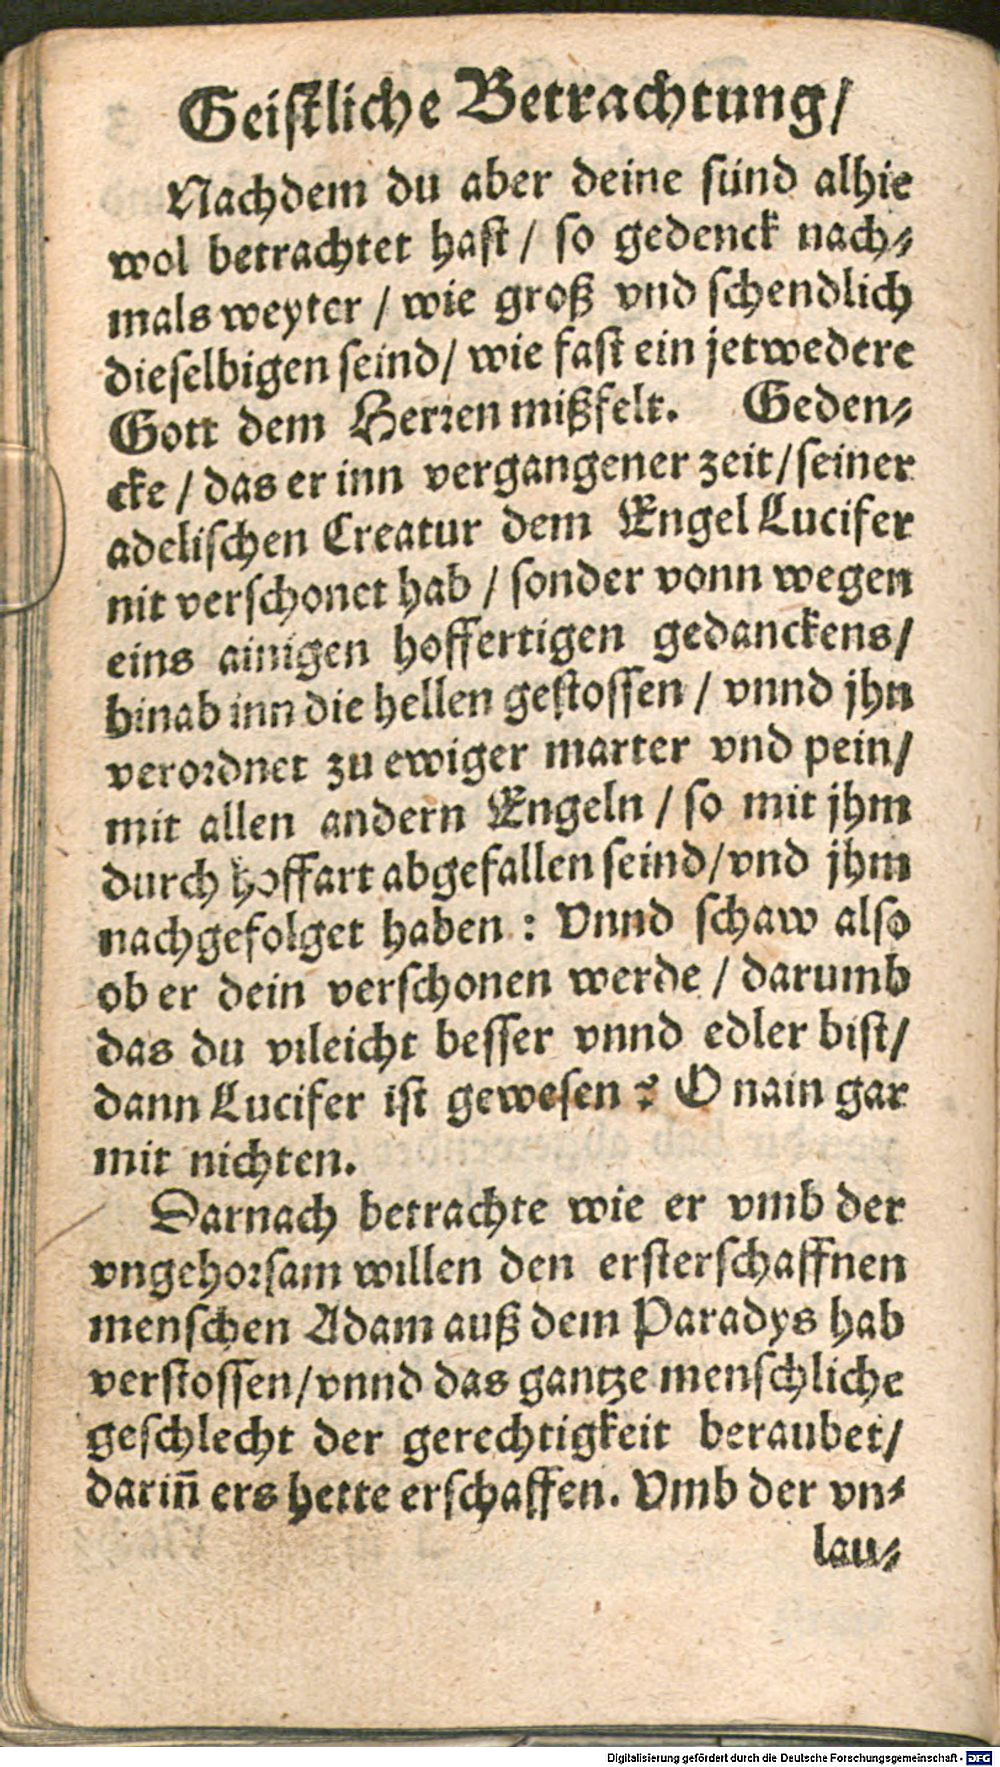 Geistliche Betrachtung/
Nachdem du aber deine sünd alhie
wol betrachtet hast / so gedenck nach⸗
mals weyter / wie groß vnd schendlich
dieselbigen seind/ wie fast ein jetwedere
Gott dem Herren mißfelt. Geden⸗
cke / das er inn vergangener zeit/seiner
adelischen Creatur dem Engel Lucifer
nit verschonet hab / sonder vonn wegen
eins ainigen hoffertigen gedanckens/
hinab inn die hellen gestossen / vnnd jhn
verordnet zu ewiger marter vnd pein/
mit allen andern Engeln / so mit jhm
durch hoffart abgefallen seind/vnd jhm
nachgefolget haben : Vnnd schaw also
ob er dein verschonen werde / darumb
das du vileicht besser vnnd edler bist/
dann Lucifer ist gewesen? O nain gar
mit nichten.
Darnach betrachte wie er vmb der
vngehorsam willen den ersterschaffnen
menschen Adam auß dem Paradys hab
verstossen/vnnd das gantze menschliche
geschlecht der gerechtigkeit beraubet/
dariñ ers hette erschaffen. Vmb der vn⸗
lau⸗
Digitalisierung gefördert durch die Deutsche Forschungsgemeinschaft - DFG